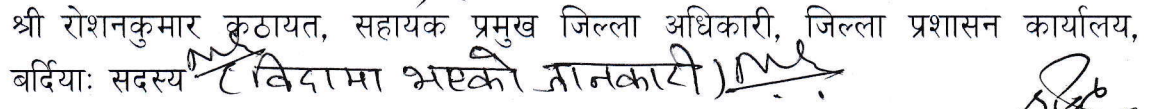 श्री रोशनकुमार कुठायत, सहायक प्रमुख जिल्ला अधिकारी, जिल्ला प्रशासन कार्यालय,
बर्दियाः सदस्य (विदामा भएको जानकारी)